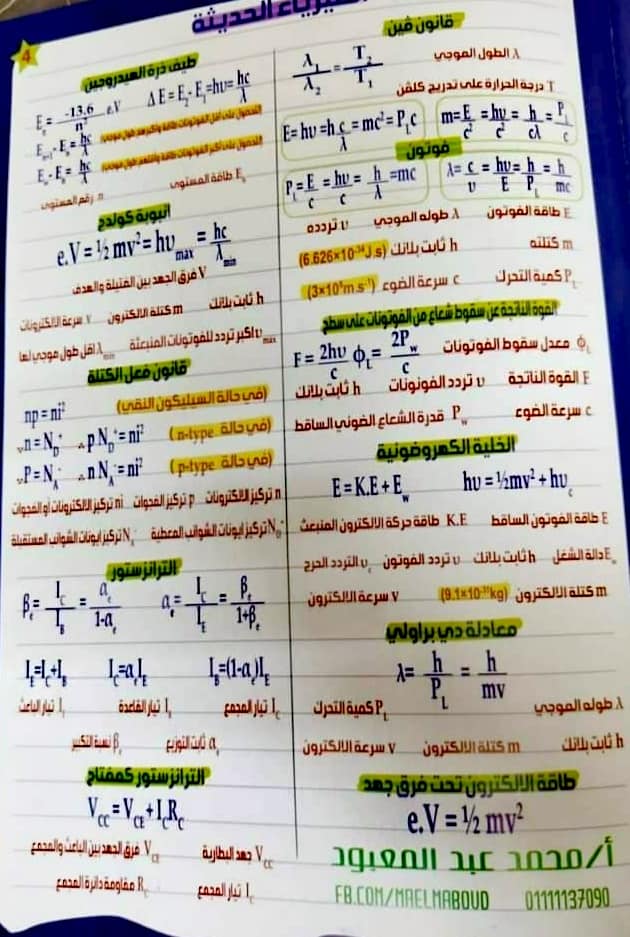 الفيزياء الحديثة
4
قانون فين
λ₁/λ₂ = T₂/T₁
λ الطول الموجي
T درجة الحرارة على تدريج كلفن
E= hυ =h c/λ = mc² = P_L c
m= E/c² = hυ/c² = h/cλ = P_L/c
فوتون
P_L= E/c = hυ/c = h/λ =mc
λ= c/υ = hυ/E = h/P_L = h/mc
E طاقة الفوتون λ طوله الموجي υ تردده
m كتلته h ثابت بلانك (6.626×10⁻³⁴J.s)
P_L كمية التحرك c سرعة الضوء (3×10⁸m.s⁻¹)
القوة الناتجة عن سقوط شعاع من الفوتونات على سطح
F= 2hυ/c ϕ_L= 2P_w/c
ϕ_L معدل سقوط الفوتونات
F القوة الناتجة υ تردد الفوتونات h ثابت بلانك
c سرعة الضوء P_w قدرة الشعاع الضوئي الساقط
الخلية الكهروضوئية
E=K.E+E_w hυ=½mv²+hυ_c
E طاقة الفوتون الساقط K.E طاقة حركة الالكترون المنبعث
E_w دالة الشغل h ثابت بلانك υ تردد الفوتون υ_c التردد الحرج
m كتلة الالكترون (9.1×10⁻³¹kg) v سرعة الالكترون
معادلة دي براولي
λ= h/P_L = h/mv
λ طوله الموجي P_L كمية التحرك
h ثابت بلانك m كتلة الالكترون v سرعة الالكترون
طاقة الالكترون تحت فرق جهد
e.V = ½ mv²
أ/محمد عبد المعبود
FB.COM/MAELMABOUD 01111137090
طيف ذرة الهيدروجين
E_n= -13.6/n² e.V ΔE=E₂-E₁=hυ= hc/λ
E_n+1-E_n= hc/λ للحصول على أقل الفوتونات طاقة وأكبر طول موجي
E_∞-E_n= hc/λ للحصول على أكبر الفوتونات طاقة وأقلهم طول موجي
E_n طاقة المستوى n رقم المستوى
أنبوبة كولدج
e.V = ½ mv² = hυ_max = hc/λ_min
V فرق الجهد بين الفتيلة والهدف
h ثابت بلانك m كتلة الالكترون v سرعة الالكترونات
υ_max أكبر تردد للفوتونات المنبعثة λ_min أقل طول موجي لها
قانون فعل الكتلة
np = ni² (في حالة السيليكون النقي)
∵n = N_D⁺ ∴pN_D⁺= ni² (في حالة n-type)
∵P = N_A⁻ ∴nN_A⁻= ni² (في حالة p-type)
n تركيز الالكترونات p تركيز الفجوات ni تركيز الالكترونات أو الفجوات
N_D⁺ تركيز ايونات الشوائب المعطية N_A⁻ تركيز ايونات الشوائب المستقبلة
الترانزستور
β_e= I_C/I_B = α_e/1-α_e α_e= I_C/I_E = β_e/1+β_e
I_E=I_C+I_B I_C=α_e I_E I_B=(1-α_e)I_E
I_C تيار المجمع I_B تيار القاعدة I_E تيار الباعث
α_e ثابت التوزيع β_e نسبة التكبير
الترانزستور كمفتاح
V_CC = V_CE + I_C R_C
V_CC جهد البطارية V_CE فرق الجهد بين الباعث والمجمع
I_C تيار المجمع R_C مقاومة دائرة المجمع